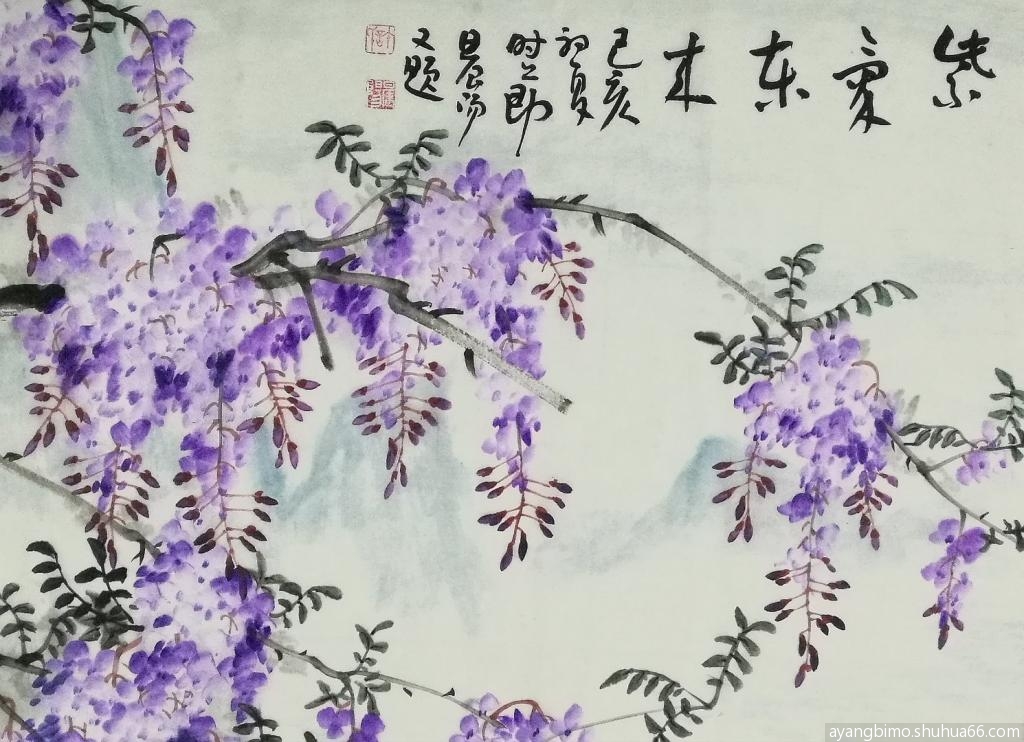 紫氣东来
己亥
初夏
时
晨阳
又题
ayangbimo.shuhua66.com